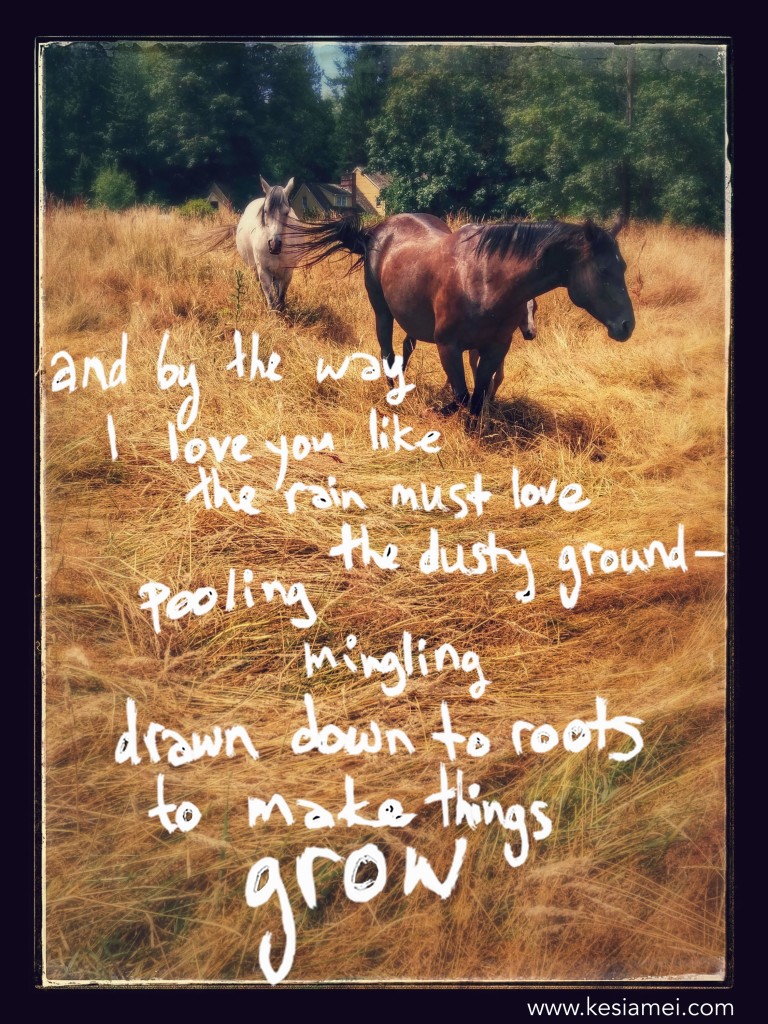 and by the way
I love you like
the rain must love
the dusty ground—
pooling
mingling
drawn down to roots
to make things
grow
www.kesiamei.com